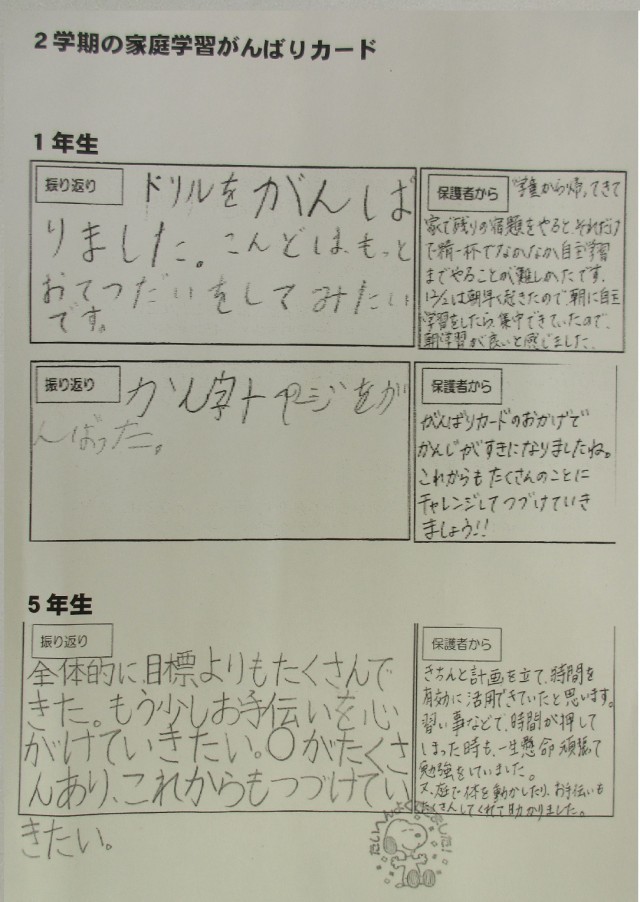 2学期の家庭学習がんばりカード
1年生
振り返り
ドリルをがんば
りました。こんどは、もっと
おてつだいをしてみたい
です。
保護者から
学童から帰ってきて
家で残りの宿題をやると、それだけ
で精一杯でなかなか自主学習
までやることが難しかったです。
12/2は朝早く起きたので、朝に自主
学習をしたら、集中できていたので、
朝学習が良いと感じました。
振り返り
かん字1ページをが
んばった。
保護者から
がんばりカードのおかげで
かんじがすきになりましたね。
これからもたくさんのことに
チャレンジしてつづけていき
ましょう!!
5年生
振り返り
全体的に、目標よりもたくさんで
きた。もう少しお手伝いを心
がけていきたい。〇がたくさ
んあり、これからもつづけてい
きたい。
保護者から
きちんと計画を立て、時間を
有効に活用できていたと思います。
習い事などで、時間が押して
しまった時も、一生懸命頑張って
勉強をしていました。
又、庭で体を動かしたり、お手伝いも
たくさんしてくれて助かりました。